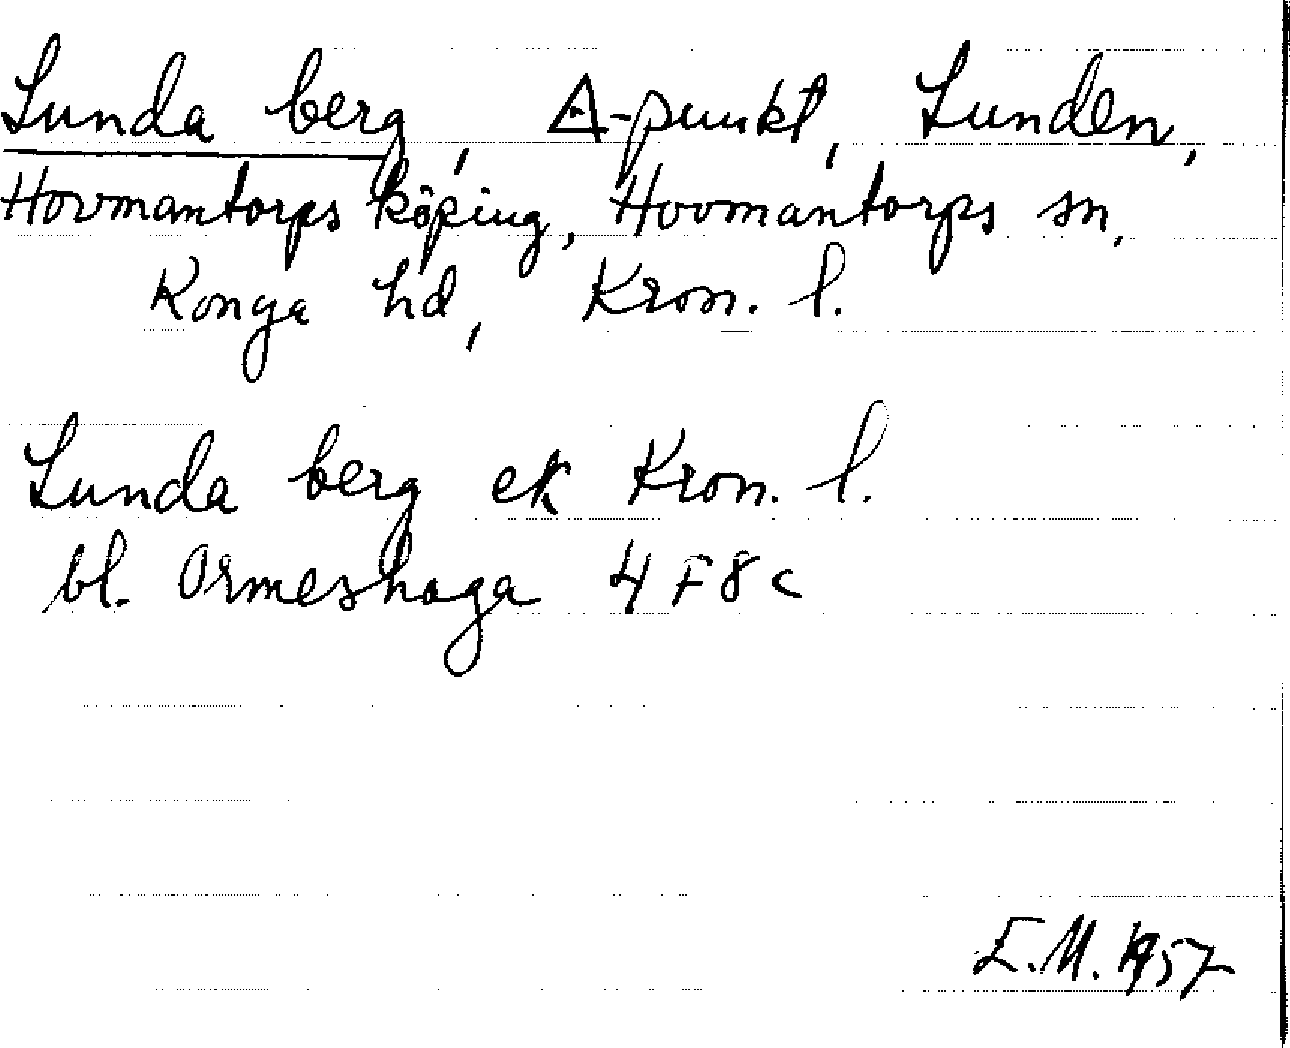 Lunda berg, ∆-punkt, Lunden,
Hovmantorps köping, Hovmantorps sn,
Konga hd, Kron. l.
Lunda berg ek Kron. l.
bl. Ormeshaga 4F8c
E.M. 1957